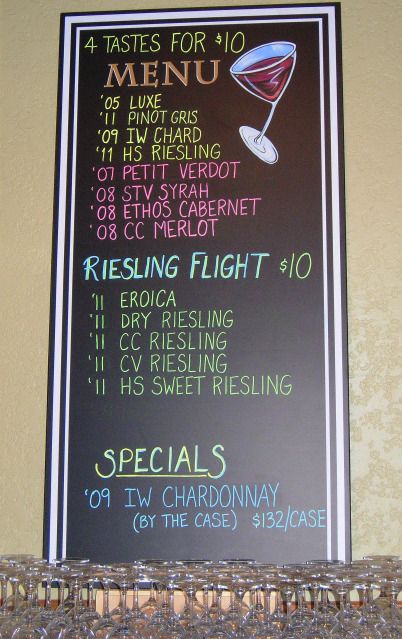 4 TASTES FOR $10
MENU
'05 LUXE
'11 PINOT GRIS
'09 IW CHARD
'11 HS RIESLING
'07 PETIT VERDOT
'08 STV SYRAH
'08 ETHOS CABERNET
'08 CC MERLOT
RIESLING FLIGHT $10
'11 EROICA
'11 DRY RIESLING
'11 CC RIESLING
'11 CV RIESLING
'11 HS SWEET RIESLING
SPECIALS
'09 IW CHARDONNAY
(BY THE CASE) $132/CASE